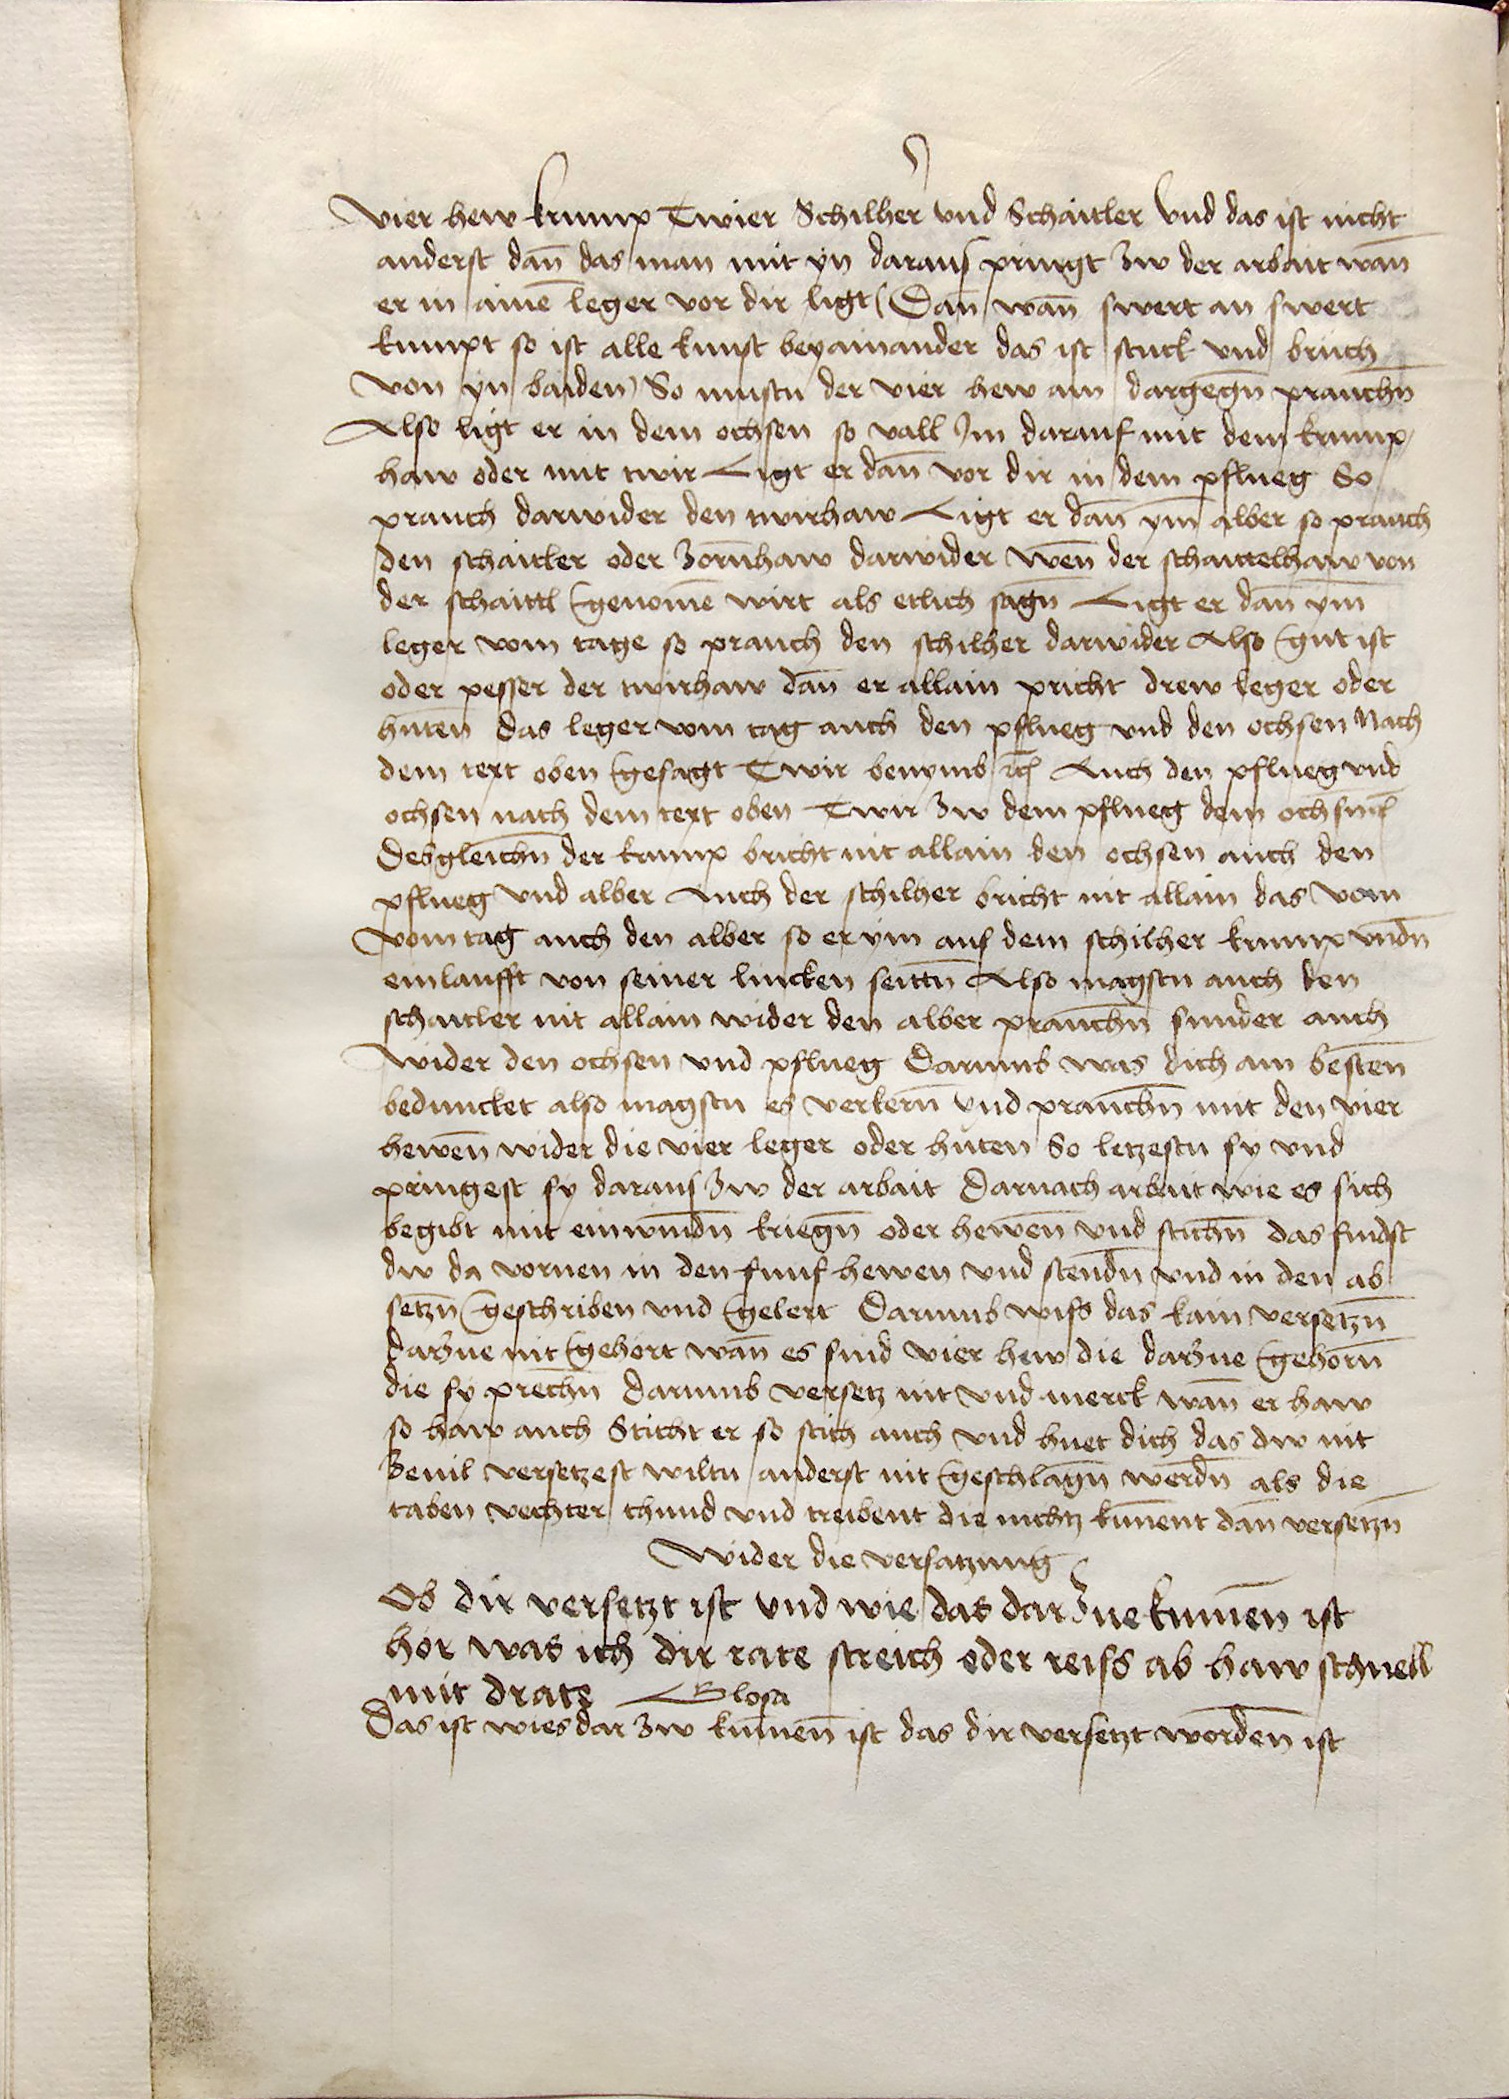 vier hew krump Twier Schilher vnd Schaitler vnd das ist nicht
anderst dan̄ das man mit yn daraus pringt zw der arbait wan̄
er in ainē leger vor dir ligt (Dan̄ wan̄ swert an swert
kumpt so ist alle kunst beyainander das ist stuck vnd bruch
von yn baiden) So mustu der vier hew ain dargegn̄ prauchn̄
Also ligt er in dem ochsen so vall Im darauf mit dem krump
haw oder mit twir Ligt er dan̄ vor dir in dem pflueg So
prauch darwider den twirhaw Ligt er dan̄ ym̄ alber so prauch
den schaitler oder zorn̄haw darwider wen̄ der schaittelhaw von
der schaittl genomē wirt als etlich sagn̄ Ligt er dan̄ ym̄
leger vom tage so prauch den schilher darwider Also gut ist
oder pesser der twirhaw dan̄ er allain pricht drew leger oder
huten̄ das leger vom tag auch den pflueg vnd den ochsen Nach
dem text oben gesagt Twir benymb etc̄ Auch den pflueg vnd
ochsen nach dem text oben Twir zw dem pflueg dem ochsn̄ etc̄
Desgleichn̄ der krump bricht nit allain den ochsen auch den
pflueg vnd alber Auch der schilher bricht nit allain das vom
vom tag auch den alber so er ym auf dem schilher krump vndn̄
einlaufft von seiner lincken seittn̄ Also magstu auch den
schaitler nit allain wider den alber prauchn̄ sunder auch
wider den ochsen vnd pflueg Darumb was dich am besten̄
beduncket also magstu es verkern̄ vnd prauchn̄ mit den vier
hewen̄ wider die vier leger oder huten So letzestu sy vnd
pringest sy daraus zw der arbait Darnach arbait wie es sich
begibt mit einwindn̄ kriegn̄ oder hewen̄ vnd stichn̄ das findst
dw da vornen in den funf hewen vnd stendn̄ vnd in den ab
setzn̄ geschriben vnd gelert Darumb wiss das kain versetzn̄
darzue nit gehort wan̄ es sind vier hew die darzue gehorn̄
die sy prechn̄ Darumb versetz nit vnd merck wan̄ er haw
so haw auch Sticht er so stich auch vnd huet dich das dw nit
zeuil versetzest wiltu anderst nit geschlagn̄ werdn̄ als die
taben vechter thund vnd treibent die nichtz kun̄ent dan̄ versetzn̄
Wider die versatzung
Ob dir versetzt ist vnd wie das darzue kumen̄ ist
hor was ich dir rate streich oder reiss ab haw schnell
mit drate Glosa
Das ist wies dar zw kumen̄ ist das dir versetzt worden̄ ist